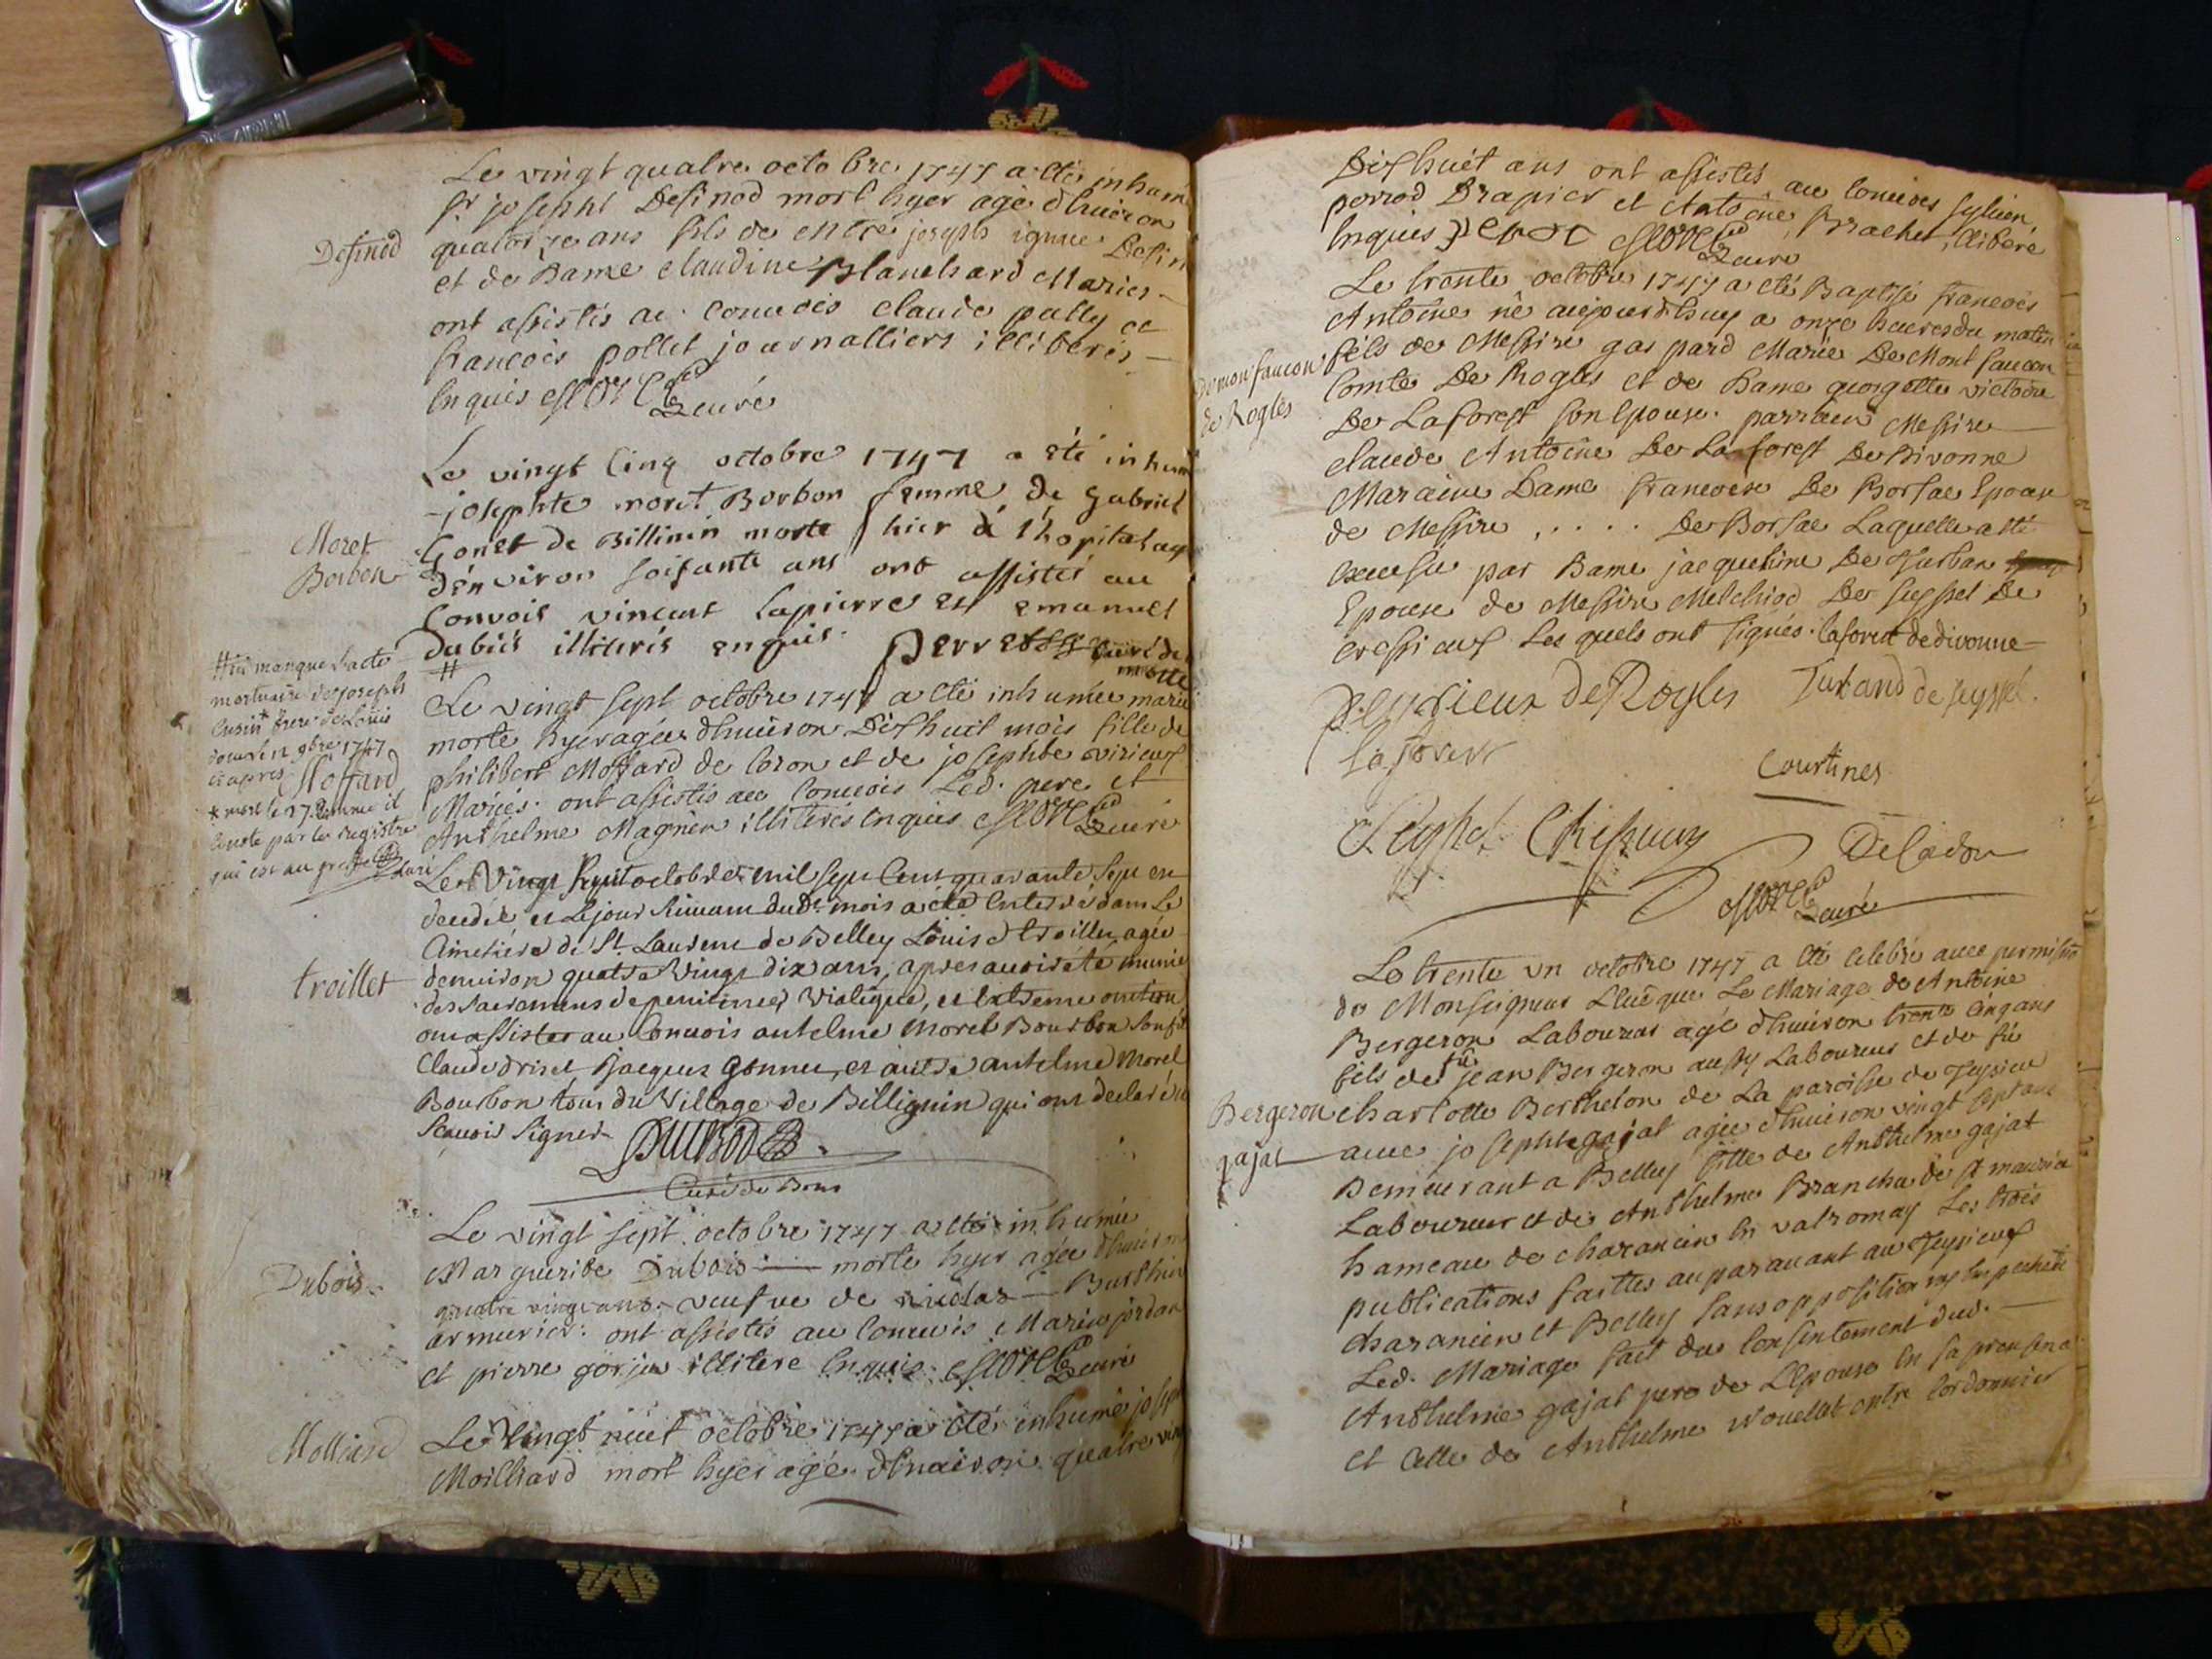 Le vingt quatre octobre 1747 a eté inhumé
Sr joseph Desinod mort hyer agé d'huiron
Desinod
quatorze ans fils de Mtre joseph ignace Desin
et de Dame Claudine Blanchard Mariés
ont assistés au Convois Claude pally et
francois pollet journalliers illiterés
Enquis curé
Le vingt Cinq octobre 1747 a été inhum
josephte moret Borbon femme de gabriel
Moret
Borbon
Gonet de Billinin morte hier à l'hopital ag
d'environ soisante ans ont assistés au
Convois vincent Lapierre et emanuel
Dubiis illiterés enquis. Perret curé de
#
# ici manque l'acte
mortuaire de joseph
Cusin* frere de Louis
1747
cy apres
Moffard
* mort le 27. comme il
conste par le registre
qui est au greffe
curé
Le vingt sept octobre 1747 a eté inhumée marie
morte hyer agée d'huiron Dishuit mois fille de
philibert Moffard de Coron et de josephte virieux
Mariés. ont assistés au Convois Led. pere et
Anthelme Magnin illiterés Enquis curé
Le Vingt Sept octobre mil sept Cent quarante Sept en
deucdé et Le jour Suivant dudt mois a été Enterré dans Le
Cimetiere de St. Laurent de Belley Louis troillet agée
troillet
d'environ quatre Vingt dix ans, apres avoir été munie
des sacremens de penitence, Viatique, et Extreme onction
ont assistés au Convois antelme Morel Bourbon son fi
Claude drisel Jacques Gonnet, et autre antelme Morel
Bourbon tous du Village de Billignin qui ont declaré
Scavoir Signer
Curé de Bons
Le vingt sept octobre 1747 a eté inhumée
Marguerite Dubois morte hyer agée d'huiron
Dubois
quatre vingt ans veufve de nicolas Burthin
armurier. ont assistés au Convois Marin jordan
et pierre gorju illitere Enquis curé
Le Vingt nuit octobre 1747 a eté inhumé josep
Molliard
Moilliard mort hyer agé d'huiron quatre vin
Dishuit ans ont assistés au Convois
perrod Drapier et Antoine Brachet, illiteré
Enquis curé
Le trente octobre 1747 a eté Baptisé francois
Antoine né aujourdhuy a onze heures du matin
fils de Messire gaspard Marie De Mont faucon
De monfaucon
de Rogles
Comte De Rogles et de Dame georgette victoire
De Laforest son Epouse. parrain Messire
Claude Antoine De Laforest De Divonne
Maraine Dame francoise De Borsac Epouse
de Messire ..... De Borsac Laquelle a eté
par Dame jacqueline De
Epouse de Messire Melchiod De Seyssel De
cressieux Les quels ont signés. laforest de divonne
de Rogles
de seyssel.
Laforest
Courtines
Seyssel Cressieux
Deladou
curé
Le trente un octobre 1747 a eté Celebré avec permission
de Monseigneur L'Eveque Le Mariage de Antoine
Bergeron Laboureur agé d'huiron trente Cinq ans
fils de fû jean Bergeron aussy Laboureur et de fû
Bergeron
gajat
charlotte Berthelon de La paroisse de Jeysieu
avec josephte gajat agée d'huiron vingt sept ans
Demeurant a Belley fille de Anthelme gajat
Laboureur et de Anthelme Brancha de St maurice
hameau de charancin En valromay Les trois
publications faittes auparavant au Jeysieux
charancin et Belley sans opposition ny Empechement
Led. Mariage fait du Consentement dud.
Anthelme gajat pere de L'Epouse En sa presence
et Celle de Anthelme Nouellat ontre Cordonnier